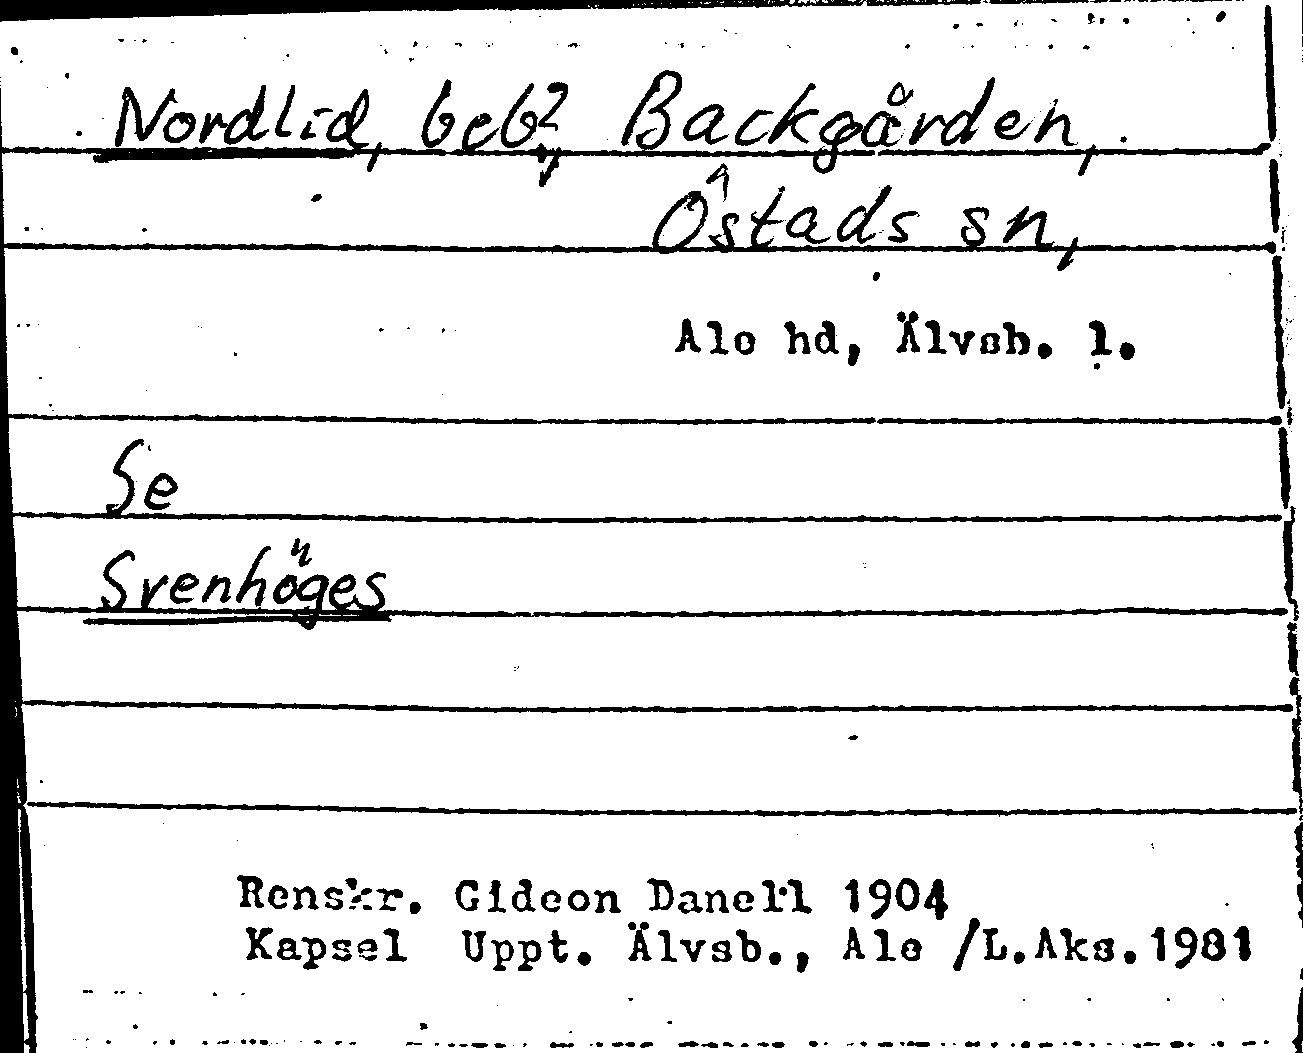 Nordlid, beb?, Backgården,
Östads sn,
Ale hd, Älvsb. l.
Se
Svenhöges
Renskr. Gideon Danell 1904
Kapsel Uppt. Älvsb., Ale /L.Aks.1981